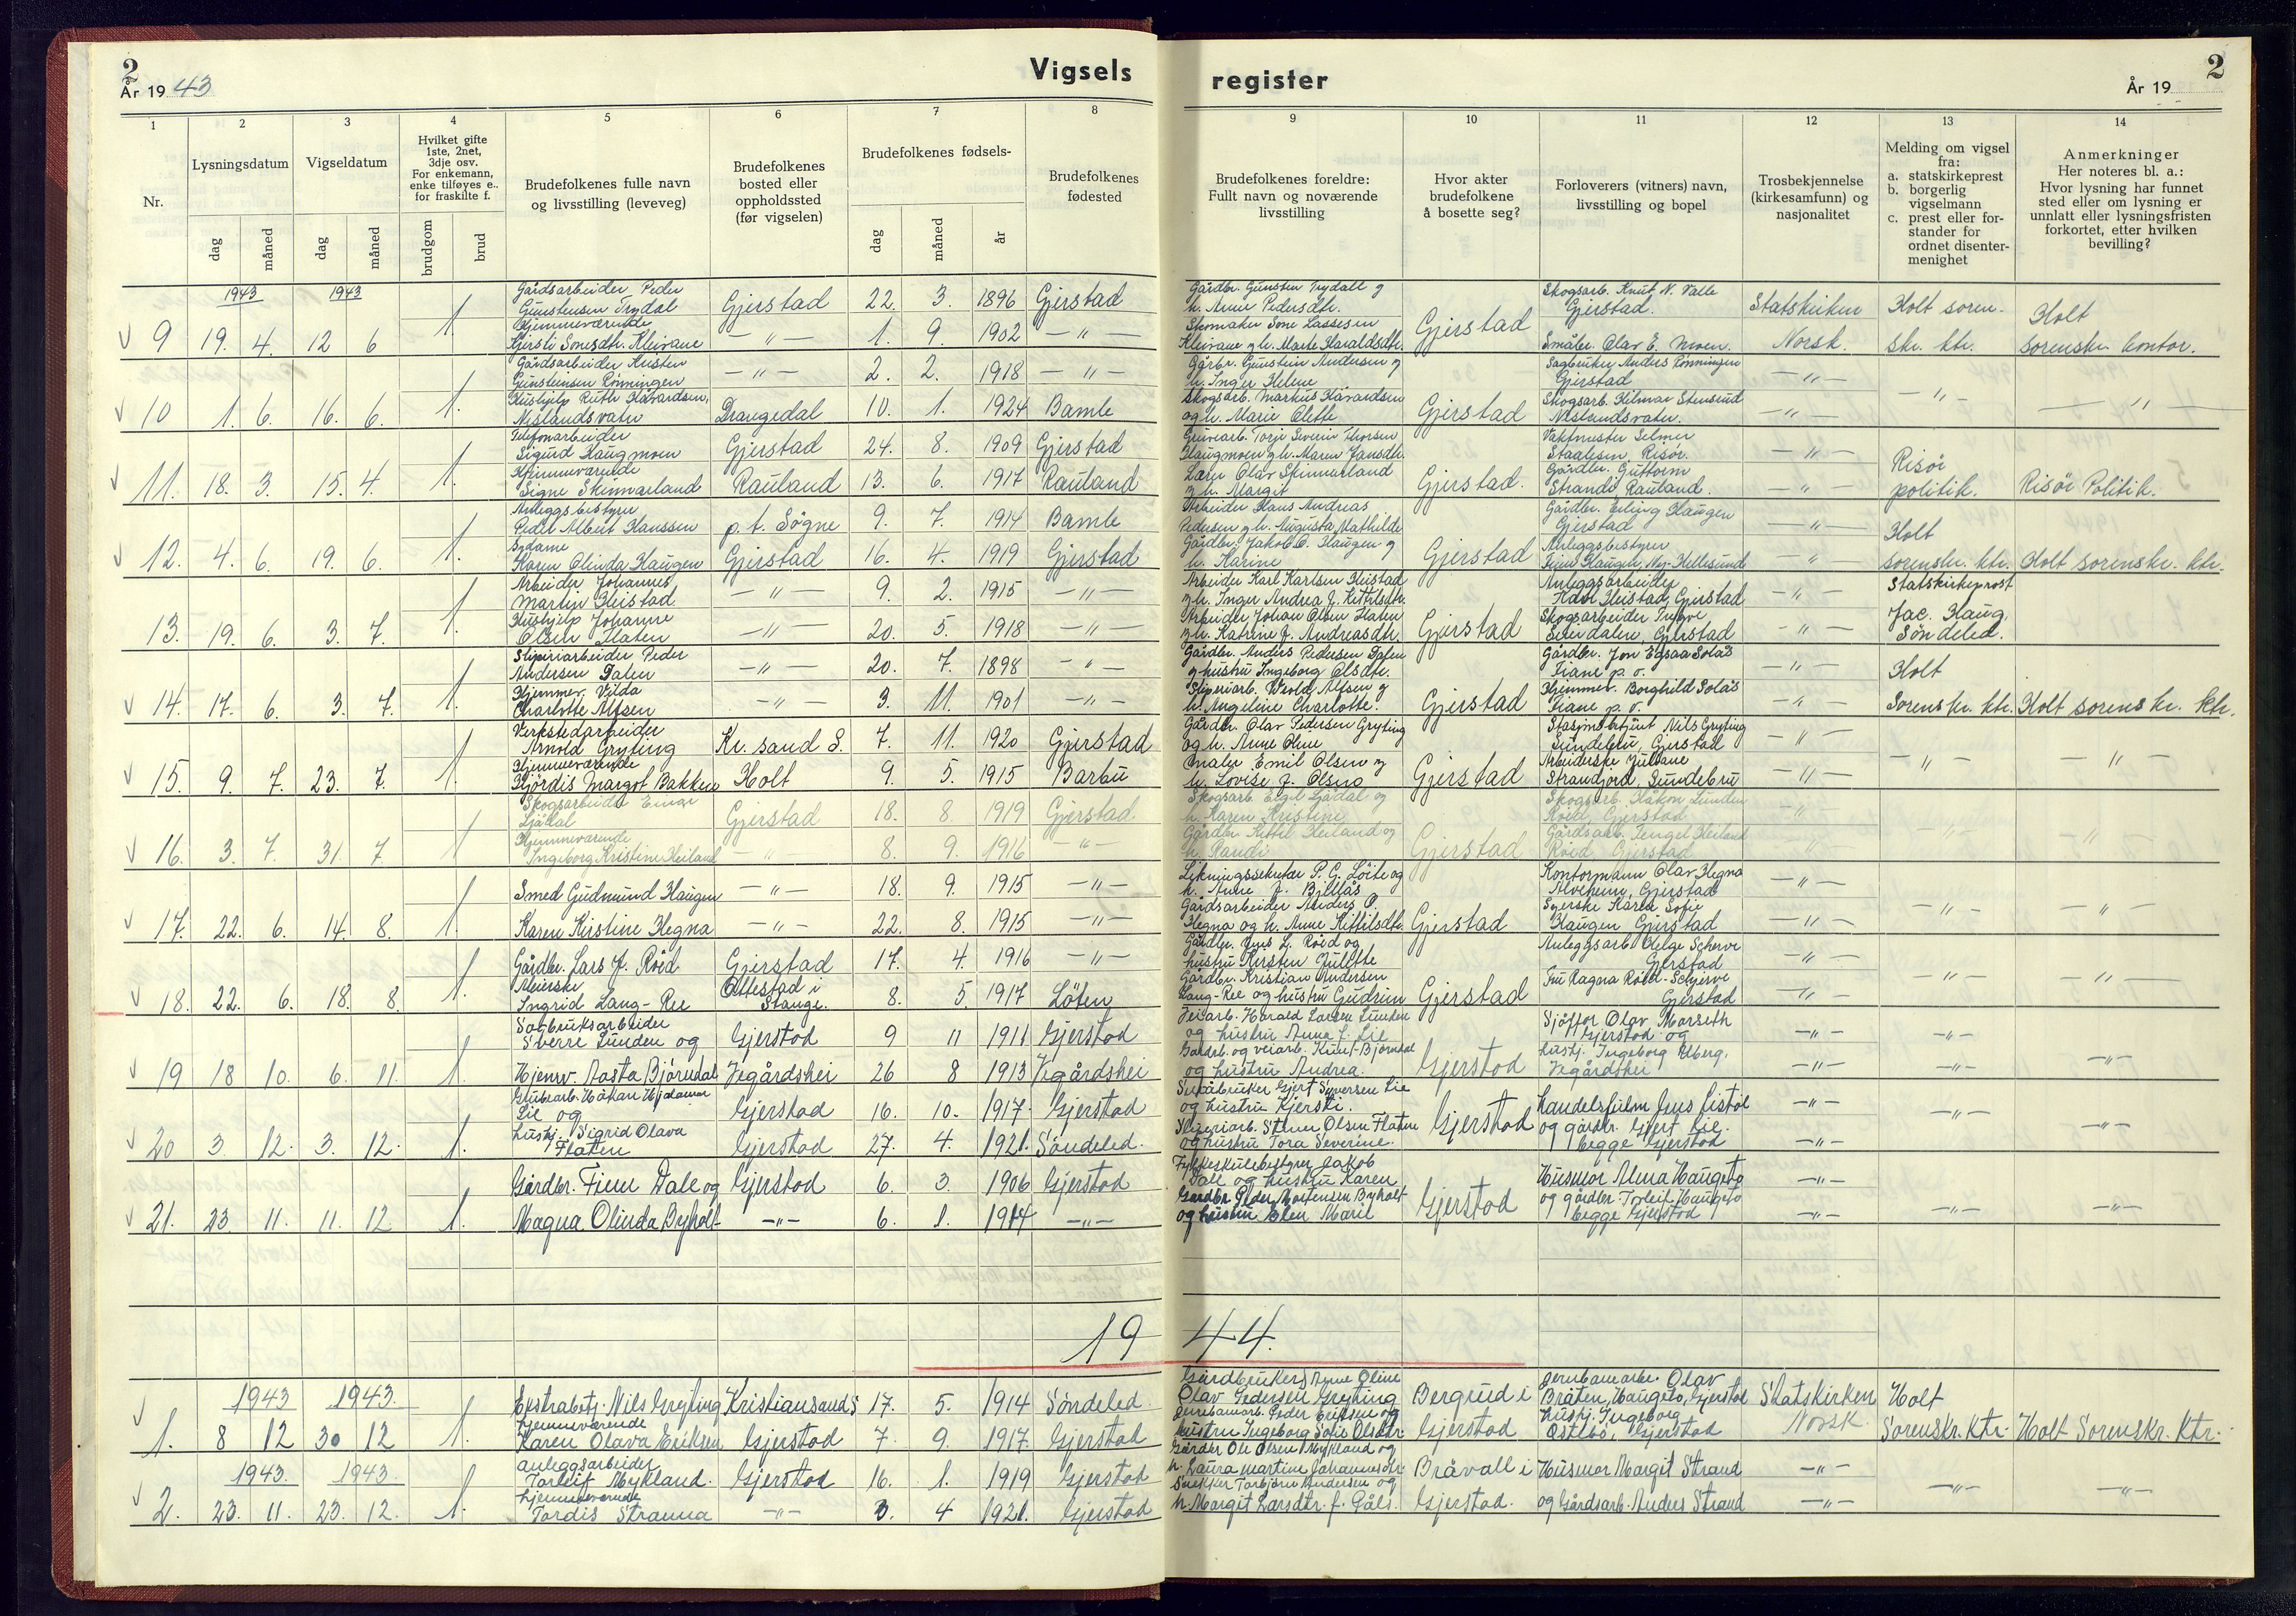 2
Vigsels
register
2
År 19 43
År 19
1 2 3 4 5 6 7 8 9 10 11 12 13 14
Nr.
Lysningsdatum
Vigseldatum
Hvilket gifte
1ste, 2net,
3dje osv.
For enkemann,
enke tilføyes e..
for fraskilte f.
Brudefolkenes fulle navn
og livsstilling (leveveg)
Brudefolkenes
bosted eller
oppholdssted
(før vigselen)
Brudefolkenes fødsels-
Brudefolkenes
fødested
Brudefolkenes foreldre:
Fullt navn og noværende
livsstilling
Hvor akter
brudefolkene
å bosette seg?
Forloverers (vitners) navn,
livsstilling og bopel
Trosbekjennelse
(kirkesamfunn) og
nasjonalitet
Melding om vigsel
fra:
a. statskirkeprest
b. borgerlig
vigselmann
c. prest eller for-
stander for
ordnet disenter-
menighet
Anmerkninger
Her noteres bl. a.:
Hvor lysning har funnet
sted eller om lysning er
unnlatt eller lysningsfristen
forkortet, etter hvilken
bevilling?
dag måned dag måned brudgom brud dag måned år
1943 1943
Gårdsarbeider Peder
Gunstensen Trydal Gjerstad 22. 3. 1896 Gjerstad
Gårdbr. Gunsten Trydall g
h. Anne Pedersdtr.
Skogsarb. Knut N. Valle
Gjerstad.
Statskirken
Holt soren.
Holt
V 9 19. 4. 12 6 1.
Hjemmeværende
Kjersti Sonesdtr. Kleivane —"— 1. 9. 1902 —"—
Skomaker Sone Lassesen
Kleivane g h. Marte Haraldsdtr.
Gjerstad
Småbr. Olav E. Moen.
Norsk.
skr. ktr.
Sorenskr. kontor.
Gårdsarbeider Kristen
Gunsteinsen Rønningen —"— 2. 2. 1918 —"—
Gårbr. Gunstein Andersen g
h. Inger Helene
Sagbruker Anders Rønningen
Gjerstad
—"—
V 10 1. 6. 16. 6. 1.
Hushjelp Ruth Håvardsen,
Neslandsvatn Drangedal 10. 1. 1924 Bamle
Skogsarb. Markus Håvardsen
og h. Marie Olette
Gjerstad
Skogsarb. Hilmar Stensrud
Neslandsvatn.
—"— —"— —"—
Telefonarbeider
Sigurd Haugmoen Gjerstad 24. 8. 1909 Gjerstad
Gruvearb. Torje Severin Thorsen
Haugmoen g h. Maren Jansdtr.
Vaktmester Selmer
Staalesen, Risør.
—"—
Risør
V 11. 18. 3. 15. 4. 1.
Hjemmeværende
Signe Skinnarland Rauland 13. 6. 1917 Rauland
Lærer Olav Skinnarland
g h. Margit
Gjerstad.
Gårdbr. Guttorm
Strand, Rauland.
—"—
politik.
Risør Politik.
Anleggsbestyrer
Peder Albert Hanssen p. t. Søgne 9. 7. 1914 Bamle
Arbeider Hans Andreas
Pedersen g h. Augusta Mathilde
Gårdbr. Erling Haugen
Gjerstad
—"—
Holt
V 12. 4. 6. 19. 6. 1.
Sydame
Karen Olinda Haugen Gjerstad 16. 4. 1919 Gjerstad
Gårdbr. Jakob O. Haugen g
h. Karine
Gjerstad
Anleggsbestyrer
Finn Haugen, Ny-Hellesund
—"—
sorenskr. ktr.
Holt sorenskr. ktr.
Arbeider Johannes
Martin Heistad —"— 9. 2. 1915 —"—
Arbeider Karl Karlsen Heistad
g h. Inger Andrea f. Kittilsdtr.
Anleggsarbeider
Karl Heistad, Gjerstad
Statskirkeprost
13. 19. 6. 3. 7. 1.
Hushjelp Johanne
Olsen Flaten —"— 20. 5. 1918 —"—
Arbeider Johan Olsen Flaten
g h. Katrine f. Andreasdtr.
Gjerstad
Skogsarbeider Yngve
Svendalen, Gjerstad
—"—
Jac. Haug,
Søndeled.
Sliperiarbeider Peder
Andersen Dalen —"— 20. 7. 1898 —"—
Gårdbr. Anders Pedersen Dalen
g hustru Ingeborg Olsdtr.
Gårdbr. Jon Egsaa Solås
Fiane p. o.
—"—
Holt
V 14. 17. 6. 3. 7. 1.
Hjemmev. Vilda
Charlotte Alfsen —"— 3. 11. 1901 —"—
Gjerstad
Hjemmev. Borghild Solås
Fiane p. o.
—"—
Sorenskr. ktr.
Holt sorenskr. ktr.
Verkstedarbeider
Arnold Gryting Kr. sand S. 7. 11. 1920 Gjerstad
Gårdbr. Olav Pedersen Gryting
og h. Anne Oline
Stasjonsbetjent Nils Gryting
Sundebru, Gjerstad
—"—
V 15. 9. 7. 23. 7. 1.
Hjemmeværende
Hjørdis Margot Bakken Holt 9. 5. 1915 Barbu
Maler Emil Olsen g
h. Lovise f. Olsen
Gjerstad
Arbeiderske Juliane
Strandjord, Sundebru
—"— —"— —"—
Skogsarbeider Einar
Ljådal Gjerstad 18. 8 1919 Gjerstad
h. Karen Kristine
Skogsarb. Håkon Lunden
Røed, Gjerstad
V 16. 3. 7. 31. 7. 1
Hjemmeværende
Ingeborg Kristine Heiland —"— 8. 9. 1916 —"—
Gårdbr. Kittil Heiland og
h. Randi
Gjerstad
Røed, Gjerstad
Smed Gudmund Haugen —"— 18. 9. 1915 —"—
Likningssekretær P. G. Løite og
Kontormann Olav Hegna
Alvheim, Gjerstad
—"—
V 17. 22. 6. 14. 8. 1.
Karen Kirstine Hegna —"— 22. 8. 1915 —"—
Gårdsarbeider Anders O.
Hegna og h. Anne Kittilsdtr.
Gjerstad
Syerske Karla Sofie
Haugen Gjerstad
—"— —"— —"—
Gårdbr. Lars J. Røed Gjerstad 17. 4. 1916 —"—
Gårdbr. Jens L. Røed og
hustru Kirsten Julette
Anleggsarb. Helge Scherve
Gjerstad
—"—
V 18. 22. 6. 18. 8. 1.
Meierske
Ingrid Lang-Ree Ottestad i
Stange. 8. 5 1917 Løten
Gårdbr. Kristian Andersen
Lang-Ree og hustru Gudrun
Gjerstad
Fru Ragna Røed-Scherve
Gjerstad
—"— —"— —"—
Sagbruksarbeider
Sverre Lunden og Gjerstad 9 11 1911 Gjerstad
Veiarb. Harald Larsen Lunden
og hustru Anna f. Lie
Sjåffør Olav Marseth
Gjerstad og
—"— —"—
V 19 18 10. 6. 11. 1.
Hjemv. Aasta Bjørndal Vegårdshei 26 8 1913 Vegårdshei
Gårdb. og veiarb. Knut Bjørndal
og hustru Andrea.
Gjerstad
hushj. Ingeborg Ulberg,
Vegårdshei
—"— —"— —"—
Grubearb. Håkon Hjalmar
Lie og Gjerstad 16. 10. 1917. Gjerstad
Småbruker Gjert Syversen Lie
og hustru Kjersti.
Handelsfullm. Jens Fistøl
—"— —"—
V 20 3 12. 3. 12. 1.
hushj. Sigrid Olava
Flaten Gjerstad 27. 4. 1921. Søndeled.
Sliperiarb. Steen Olsen Flaten
og hustru Tora Severine.
Gjerstad
og gårdbr. Gjert Lie.
begge Gjerstad
—"— —"—
Gårdbr. Finn Dale og Gjerstad 6. 3. 1906 Gjerstad
Fylkesskulebestyrer Jakob
Dale og hustru Karen
Husmor Alma Haugeto
—"—
V 21. 23 11. 11. 12 1.
Magna Olinda Byholt —"— 6. 1. 1914 —"—
Gårdbr. Peder Mortensen Byholt
og hustru Elen Marie
Gjerstad
og gårdbr Torleif Haugeto
begge Gjerstad
—"— —"— —"—
19 44.
1943 1943.
Ekstrabetj. Nils Gryting Kristiansand S 17. 5. 1914 Søndeled
Gårdbrukers Anne Oline
Olav Pedersen Gryting
Bergrud i
Jernbanearb. Olav
Bråten, Haugeto, Gjerstad
Statskirken
Holt
V 1. 8 12 30 12 1.
hjemmeværende
Karen Olava Eriksen Gjerstad 7. 9. 1917. Gjerstad
Jernbanearb. Peder Eriksen og
hustru Ingeborg Sofie Olsdtr.
Gjerstad
hushj. Ingeborg
Østebø, Gjerstad
Norsk
Sorenskr. Ktr.
Holt Sorenskr. Ktr.
1943. 1943
anleggsarbeider
Torleif Mykland. Gjerstad 16. 1. 1919 Gjerstad
Gårdbr Ole Olsen Mykland og
h. Laura Martine Johannesdtr
Bråvall i
Husmor Margit Strand
—"—
V 2. 23. 11. 23. 12. 1.
hjemmeværende
Tordis Stranna —"— 3. 4 1921. Gjerstad
Snekker Torbjørn Andersen og
h. Margit Larsdtr. f. Gåls.
Gjerstad.
og Gårdsarb. Anders Strand
—"— —"— —"—